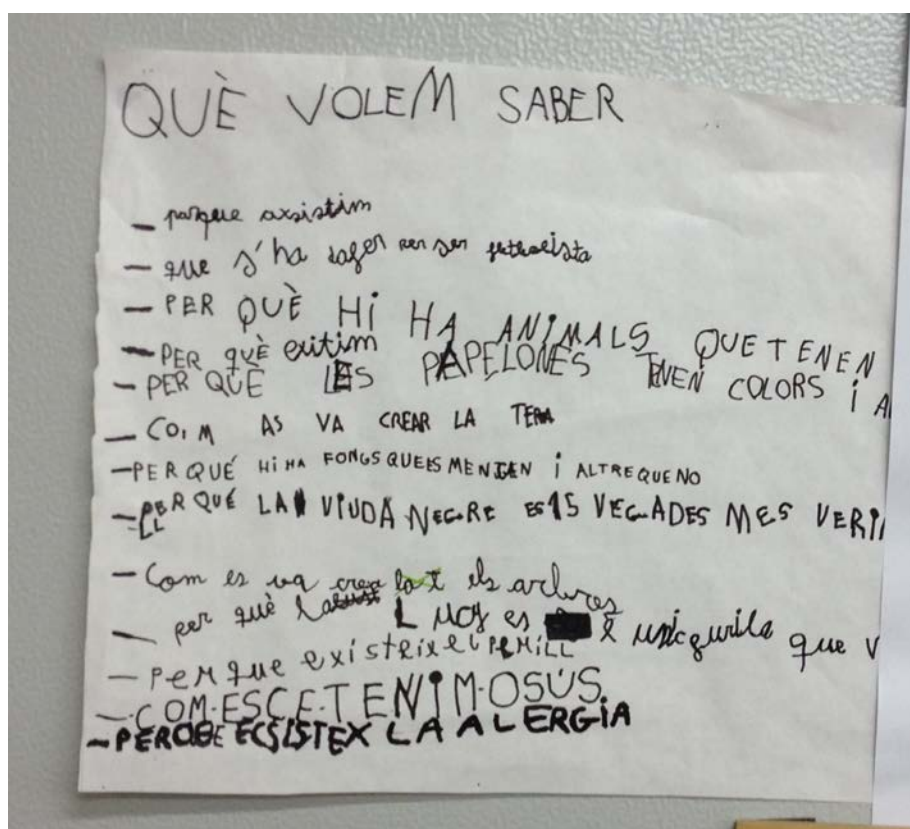 QUÈ VOLEM SABER
- parque axsistim
- que s'ha dafer per ser
- PER QUÈ Hi HA ANIMALS QUE TENEN
- PER què exitim
- PER QUÈ LES PAPELONES TENEN COLORS i A
- CO,M AS VA CREAR LA TERA
- PER QUÉ Hi HA FONGS QUE ES MENJEN i ALTRE QUE NO
- PER QUÉ LA VIUDA NEGRE ES 15 VEGADES MES VERI
LL
- Com es va crea els arbres
- per què L es que V
- PERque existeix el PERILL
- COM·ES·CE·TENIM·OSUS.
- PERQUE ECSISTEX LA ALERGIA